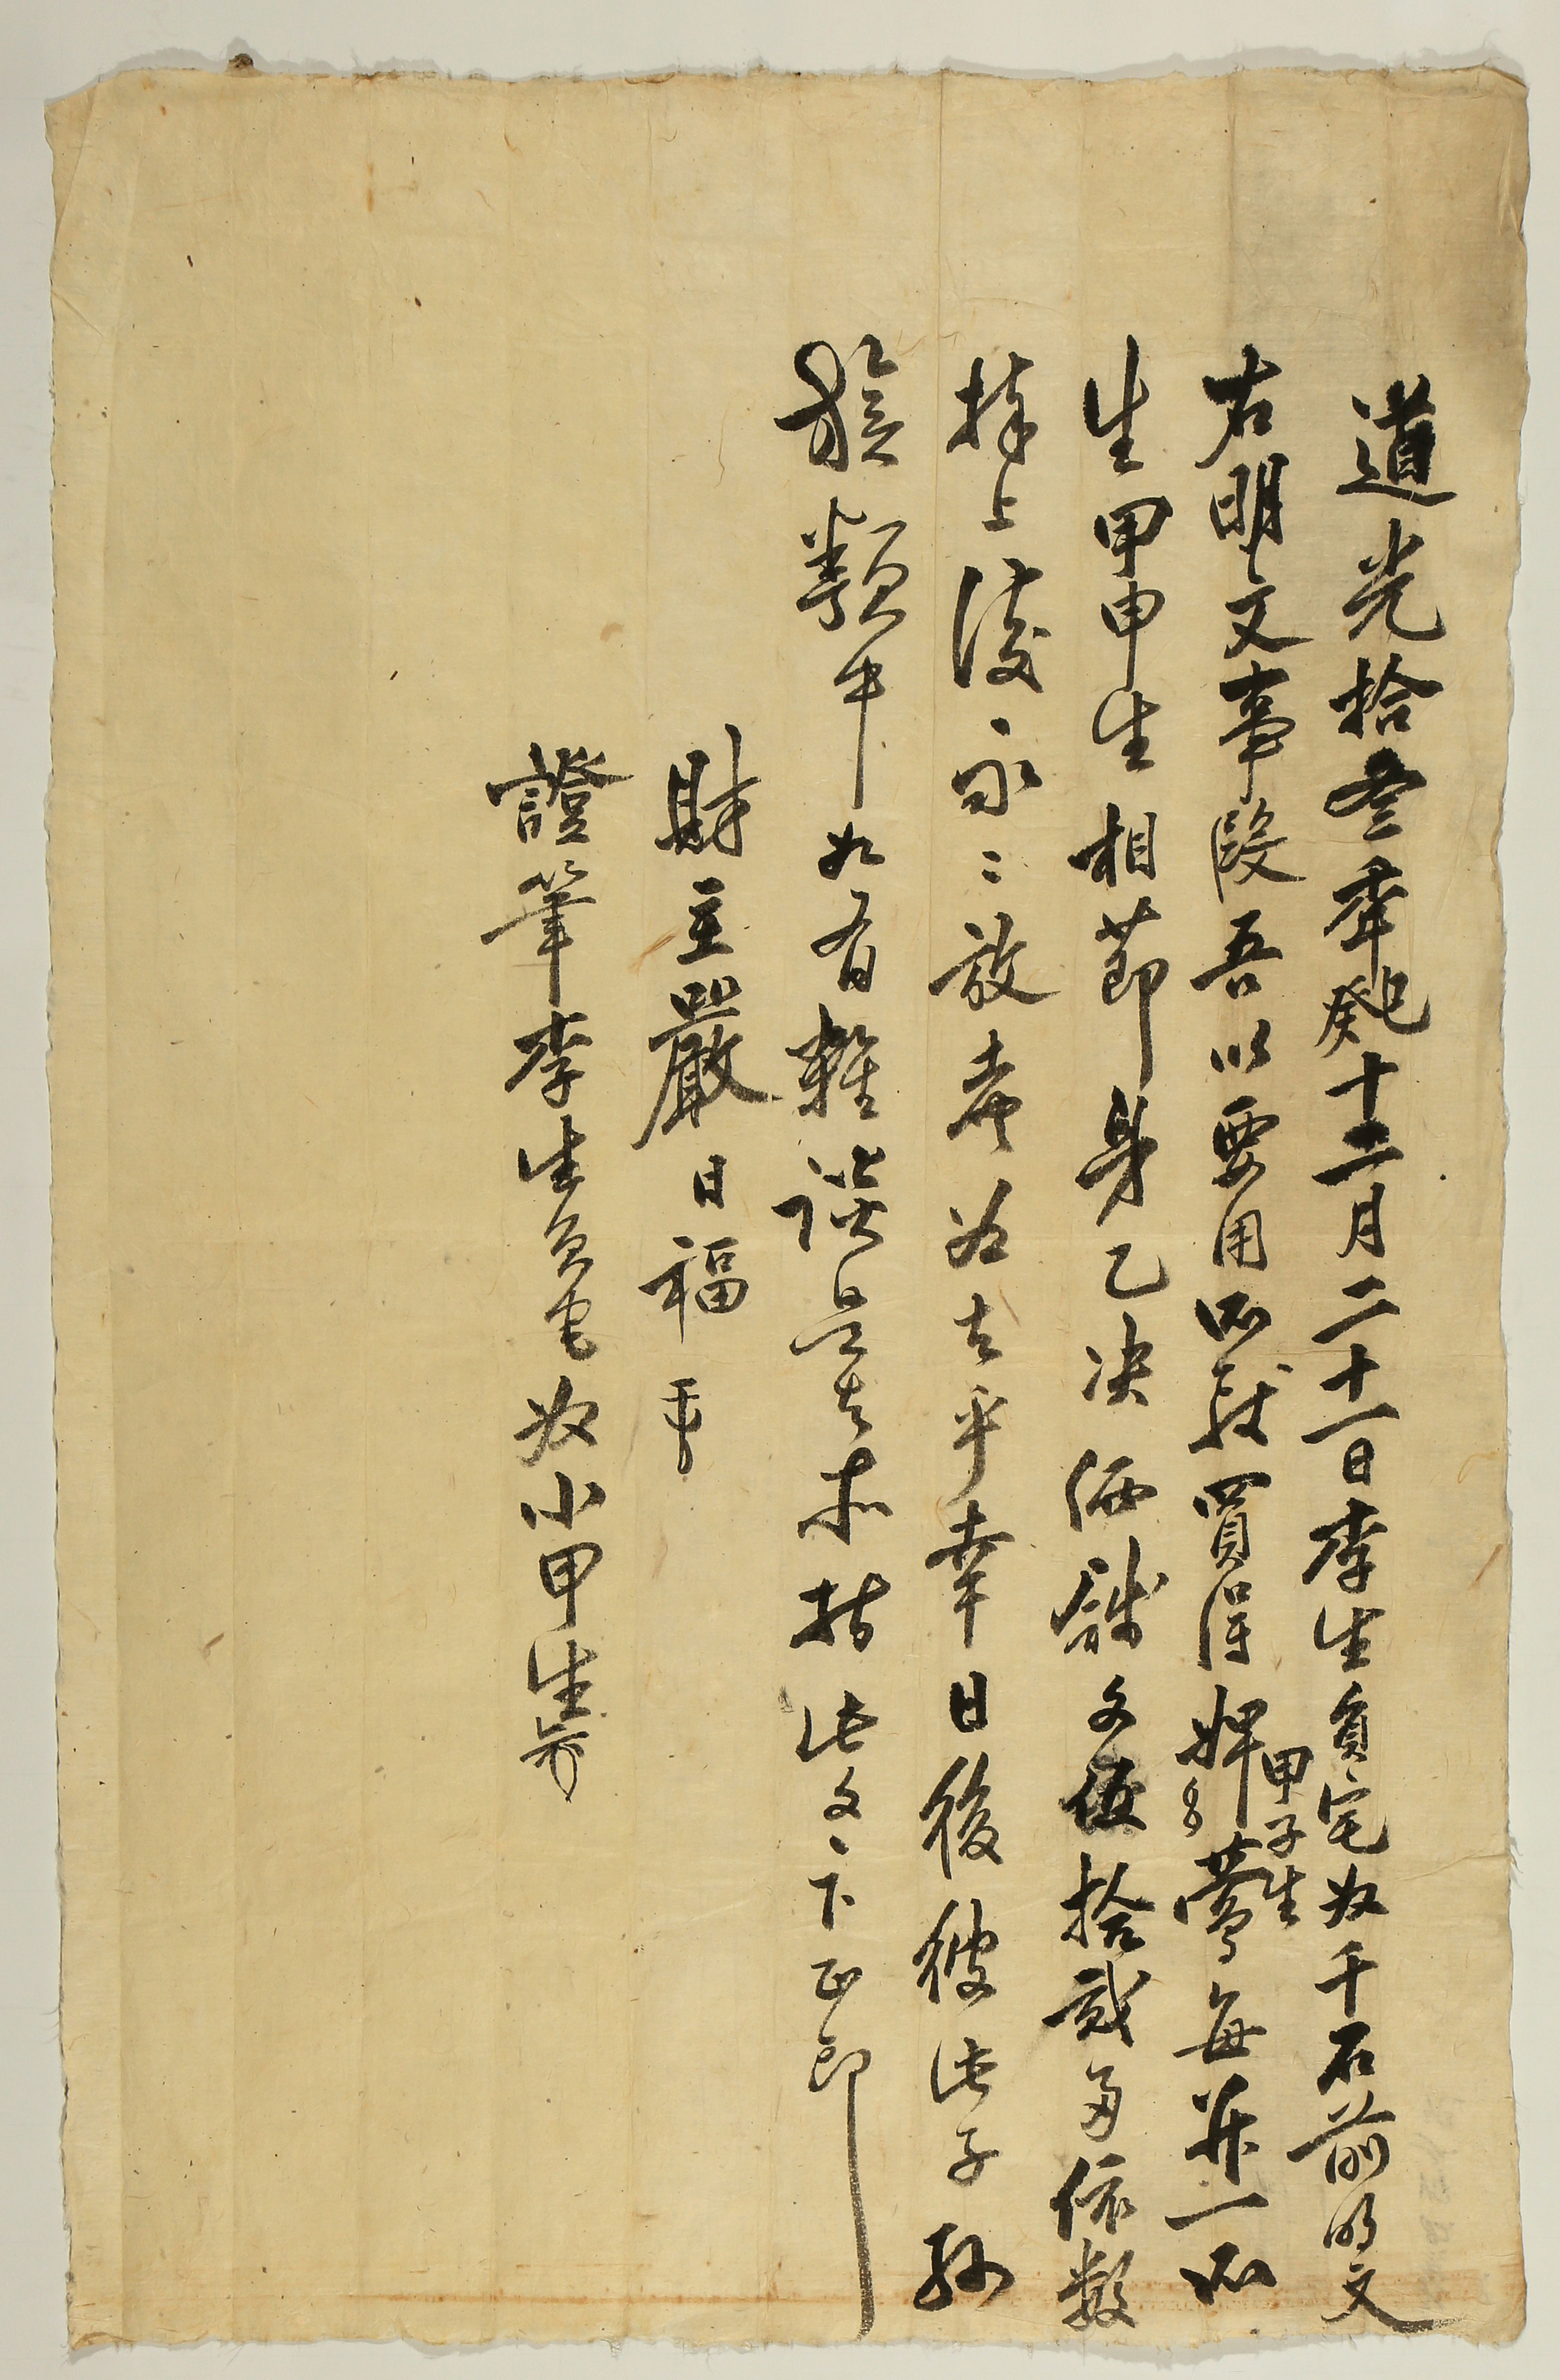 道光拾叄年癸巳十二月二十一日李生員宅奴千石前明文
右明文事段吾以要用所致買得婢 甲子生 鶯每幷一所
生甲申生相節身乙決価錢文伍拾貳兩依數
捧上後永永放賣爲去乎幸日後彼此子孫
族類中如有雜談是去所持此文下正卽
財主嚴日福
證筆李生員宅奴小甲生